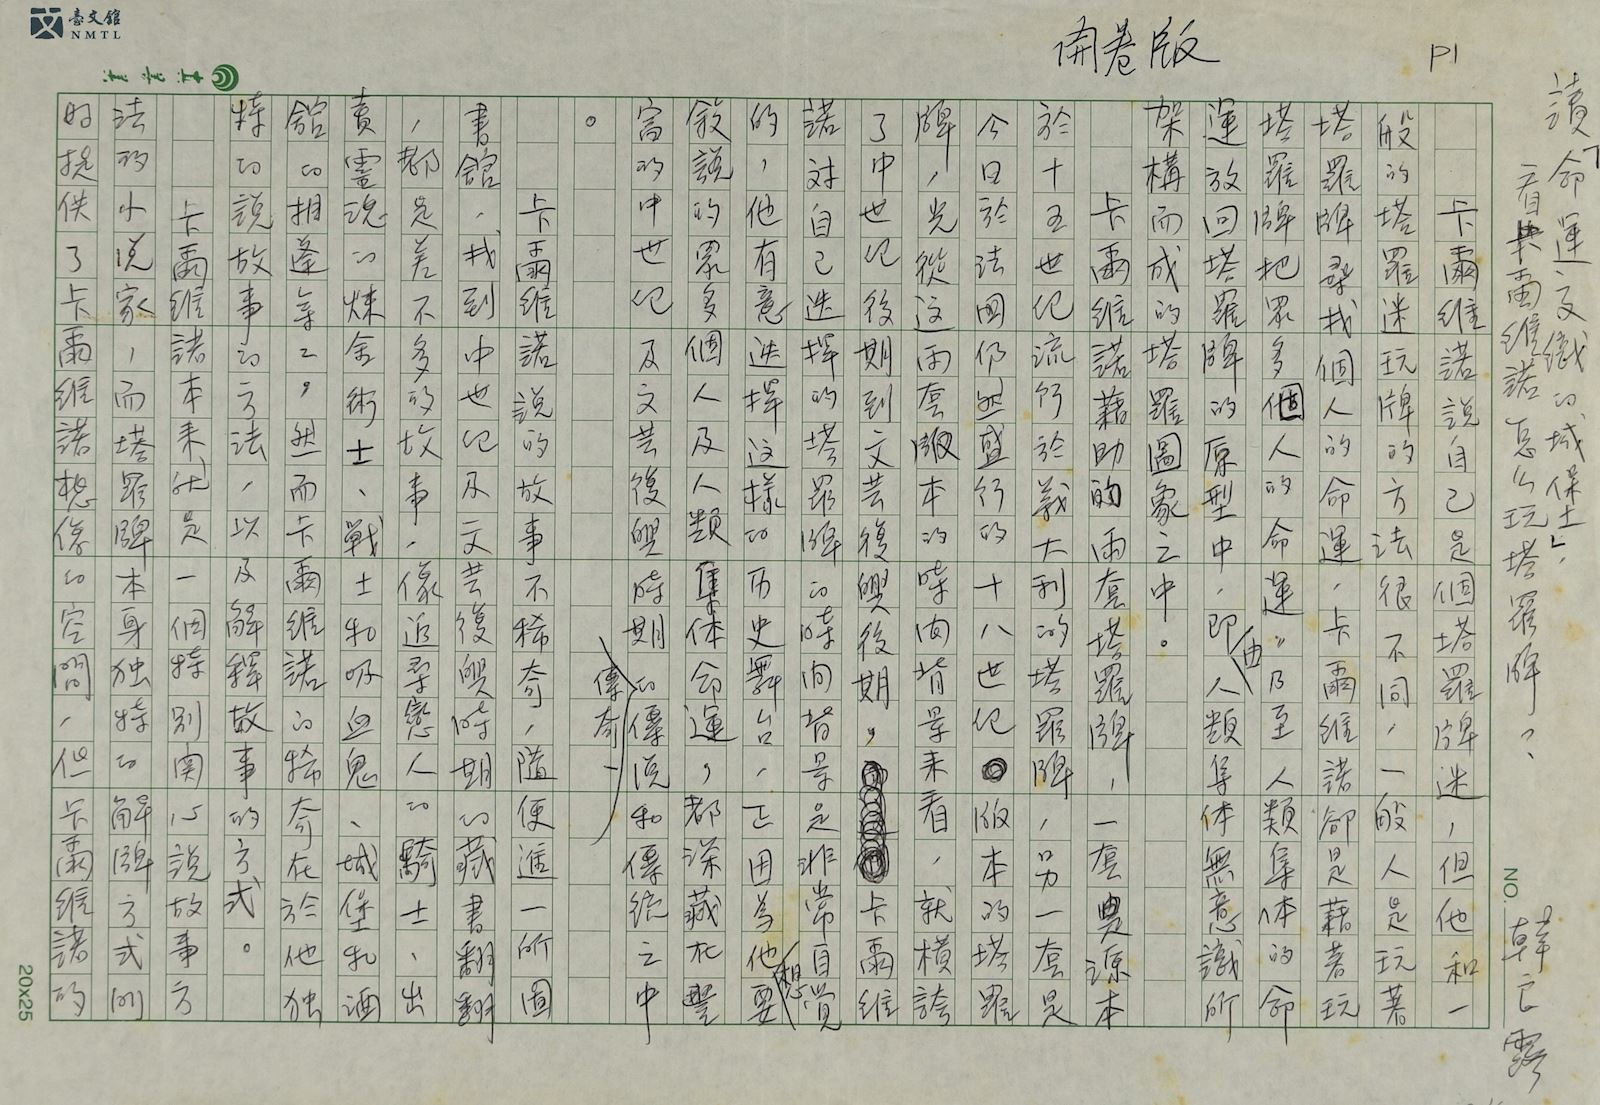 臺文館
NMTL
開卷版
P1
讀「命運交織的城堡」,
看卡爾維諾怎么玩塔羅牌?
韓良露
NO.
卡爾維諾說自己是個塔羅牌迷,但他和一
般的塔羅迷玩牌的方法很不同,一般人是玩著
塔羅牌尋找個人的命運,卡爾維諾卻是藉著玩
塔羅牌把眾多個人的命運,乃至人類集体的命
運放回塔羅牌的原型中,即由人類集体無意識所
架構而成的塔羅圖象之中。
卡爾維諾藉助的兩套塔羅牌,一套豊源本
於十五世纪流行於義大利的塔羅牌,另一套是
今日於法国仍然盛行的十八世纪版本的塔羅
牌,光從这兩套版本的時间背景来看,就横誇
了中世纪後期到文芸復興後期,卡爾維
諾对自己选择的塔羅牌的時间背景是非常自覺
的,他有意选择这樣的历史舞台,正因為他想要
敘說的眾多個人及人類集体命運,都深藏在豐
富的中世纪及文芸復興時期的傳奇、傳說和傳统之中
。
卡爾維諾說的故事不稀奇,隨便進一所圖
書館,找到中世纪及文芸復興時期的藏書翻翻
,都是差不多的故事,像追尋戀人的騎士、出
賣靈魂的煉金術士、戰士和吸血鬼、城堡和酒
舘的相逢等等,然而卡爾維諾的稀奇在於他独
特的說故事的方法,以及解釋故事的方式。
卡爾維諾本来就是一個特別関心說故事方
法的小说家,而塔羅牌本身独特的解牌方式剛
好提供了卡爾維諾想像的空間,但卡爾維諾的
20X25